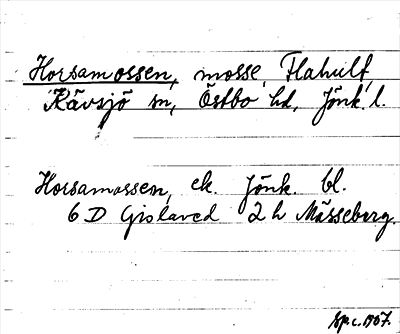 Horsamossen, mosse, Flahult,
Kävsjö sn, Östbo hd, Jönk. l.
Horsamossen, ek. Jönk. bl.
6 D Gislaved 2 h Mässeberg.
1967.